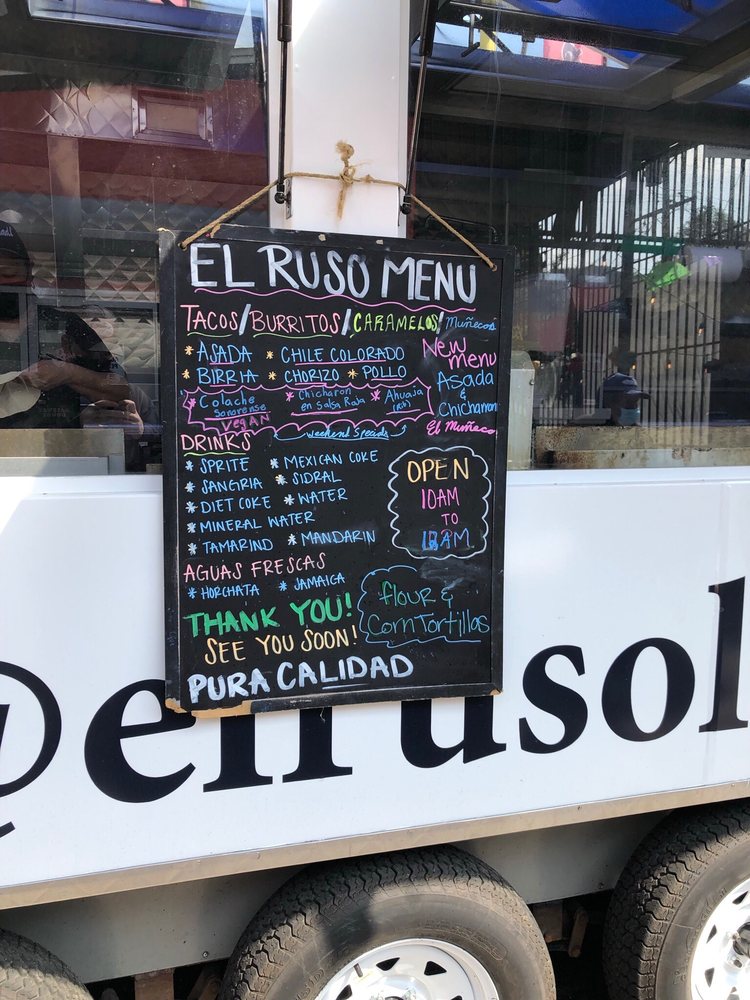 EL RUSO MENU
TACOS/BURRITOS/CARAMELOS/Muñecos
* ASADA * CHILE COLORADO
* BIRRIA * CHORIZO * POLLO
New menu
Asada
&
Chicharron
El Muñeco
* Colache Sonorense VEGAN
* Chicharon en Salsa Roja
* Ahuaja
weekend Specials
DRINKS
* SPRITE * MEXICAN COKE
* SANGRIA * SIDRAL
* DIET COKE * WATER
* MINERAL WATER
* TAMARIND * MANDARIN
OPEN
10AM
TO
AM
AGUAS FRESCAS
* HORCHATA * JAMAICA
THANK YOU!
SEE YOU SOON!
flour &
Corn Tortillas
PURA CALIDAD
@elrusol